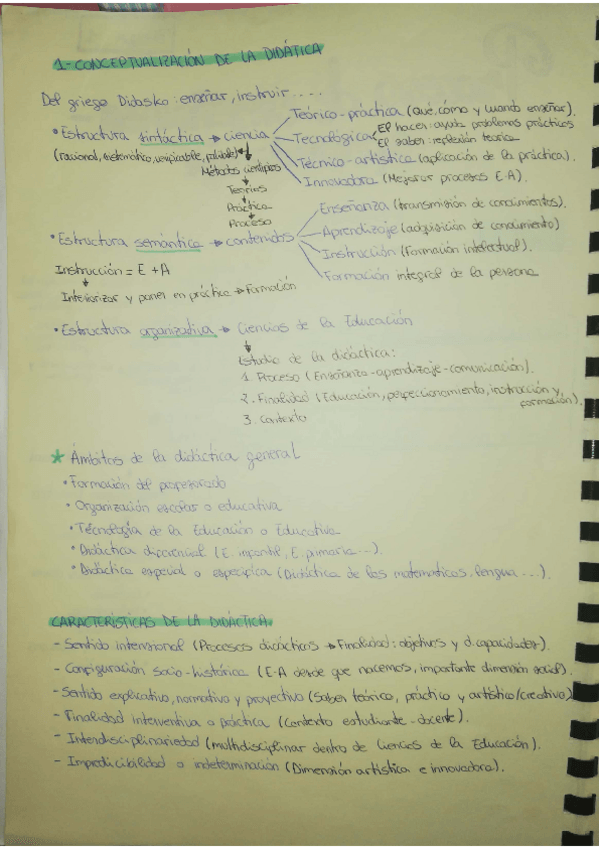 1-CONCEPTUALIZACIÓN DE LA DIDÁTICA
Del griego Didasko: enseñar, instruir....
Teórico-práctica (Qué, cómo y cuando enseñar).
• Estructura sintáctica → ciencia
Tecnológica
El hacer: ayuda problemas prácticos
El saber: reflexión teórica
(racional, sistemático, verificable, faliable)
Técnico-artística (aplicación de la práctica).
Métodos científicos
Innovadora (Mejorar procesos E-A).
Teorías
Práctica
Proceso
Enseñanza (transmisión de conocimientos).
• Estructura semántica → contenidos
Aprendizaje (adquisición de conocimiento)
Instrucción (Formación intelectual).
Formación integral de la persona
Instrucción = E + A
Interiorizar y poner en práctica → Formación
• Estructura organizativa → Ciencias de la Educación
Estudio de la didáctica:
1. Proceso (Enseñanza-aprendizaje-comunicación).
2. Finalidad (Educación, perfeccionamiento, instrucción y formación).
3. Contexto
* Ámbitos de la didáctica general
• Formación del profesorado
• Organización escolar o educativa
• Técnología de la Educación o Educativa
• Didáctica diferencial (E. infantil, E. primaria...).
• Didáctica especial o específica (Didáctica de las matemáticas, lengua...).
CARACTERÍSTICAS DE LA DIDÁCTICA
- Sentido intensional (Procesos didácticos → Finalidad: objetivos y d. capacidades).
- Configuración socio-histórica (E-A desde que nacemos, importante dimensión social).
- Sentido explicativo, normativo y proyectivo (Saber teórico, práctico y artístico/creativo)
- Finalidad interventiva o práctica (Contexto estudiante-docente).
- Interdisciplinariedad (multidisciplinar dentro de Ciencias de la Educación).
- Impredicibilidad o indeterminación (Dimensión artística e innovadora).